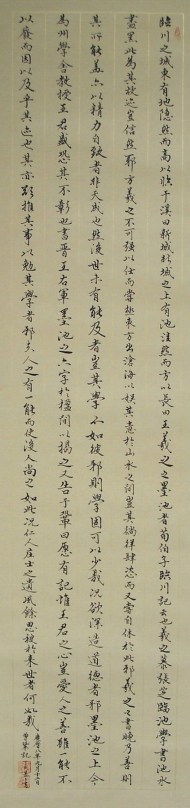 臨川之城東有地隱然而高以臨于溪曰新城新城之上有池洼然而方以長曰王羲之之墨池者荀伯子臨川記云也羲之慕張芝臨池學書池水
盡黑此為其故迹豈信然耶方羲之之不可強以仕而嘗極東方出滄海以娛其意於山水之間豈其徜徉肆恣而又嘗自休於此邪羲之之書晚乃善則
其所能蓋亦以精力自致者非天成也然後世未有能及者豈其學不如彼邪則學固可以少哉況欲深造道德者邪墨池之上今
為州學舍教授王君盛恐其不彰也書晉王右軍墨池之六字於楹間以揭之又告于鞏曰願有記惟王君之心豈愛人之善雖一能不
以廢而因以及乎其迹也其亦欲推其事以勉其學者邪夫人之有一能而使後人尚之如此況仁人莊士之遺風餘思被於來世者何如哉
慶曆八年九月十二日
曾鞏記